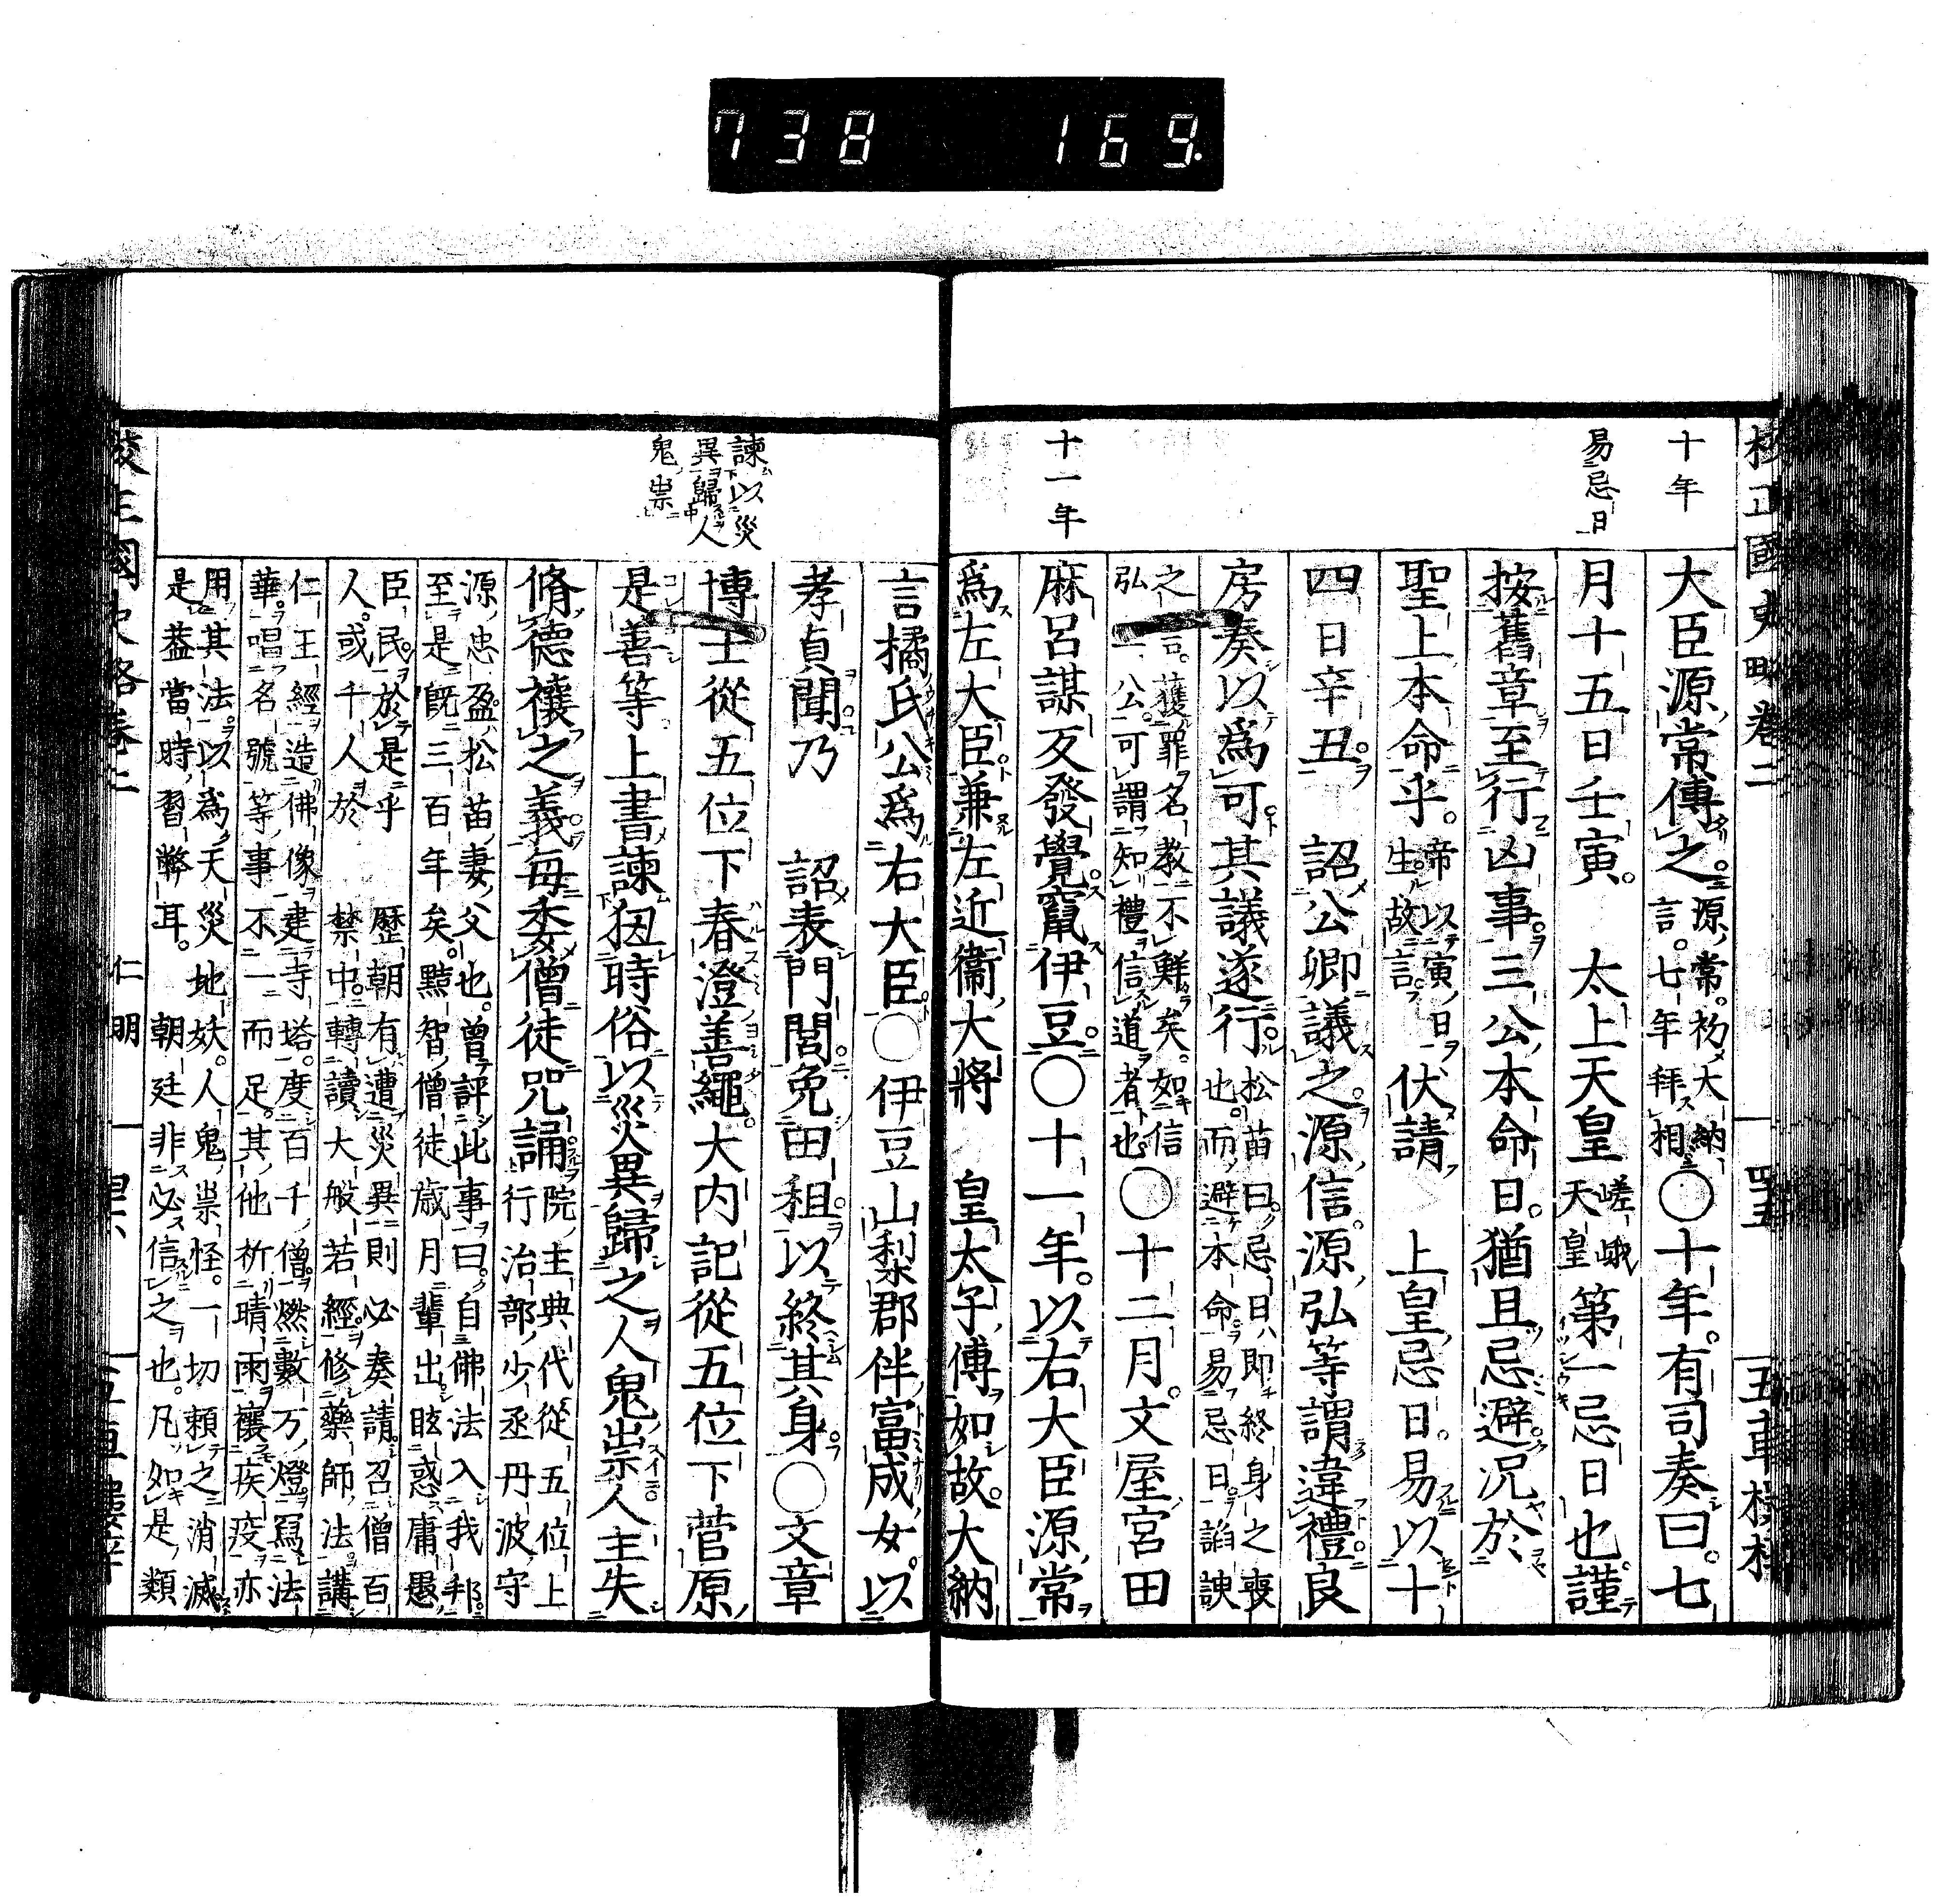 738 169.
校正國史略卷二
四十五
五車樓梓
十年
易忌日
十一年
大臣源常傅之。源常。初大納
言。七年拜相〇十年。有司奏曰。七
月十五日壬寅。太上天皇嵯峨
天皇第一忌日也。謹
按舊章至行凶事。三公本命日。猶且忌避。况於
聖上本命乎。帝以寅日
生。故言。伏請上皇忌日。易以十
四日辛丑詔公卿議之。源信。源弘等謂違禮良
房奏以爲可。其議遂行。松苗曰。忌日。即終身之喪
也。而避本命易忌日。諂諛
之言。獲罪名教不鮮矣。如信
弘二公。可謂知禮信道者也〇十二月。文屋宮田
麻呂謀反發覺。竄伊豆。〇十一年。以右大臣源常
爲左大臣兼左近衞大將皇太子傅如故。大納
諫以災
異歸人
鬼祟
言橘氏公爲右大臣〇伊豆山梨郡伴富成女。以
孝貞聞。乃詔表門閭免田租。以終其身〇文章
博士從五位下春澄善繩。大內記從五位下菅原
是善等上書諫狃時俗以災異歸之人鬼祟。人主失
脩德禳之義。每委僧徒咒誦。院主典代從五位上
行治部少丞丹波守
源忠盈。松苗妻父也。曾評此事曰。自佛法入我邦。
至是旣三百年矣。黠智僧徒歲月輩出。眩惑庸愚
臣民。於是乎歷朝有遭災異則必奏請。召僧百
人。或千人於禁中。轉讀大般若經。修藥師法。講
仁王經。造佛像。建寺塔。度百千僧。燃數万燈。寫法
華。唱名號等事。不一而足。其他祈晴雨。禳疾疫。亦
用其法。以爲天災地妖。人鬼祟怪。一切賴之消滅
是蓋當時習弊耳。朝廷非必信之也。凡如是類
校正國史略卷二
仁明
五車樓梓